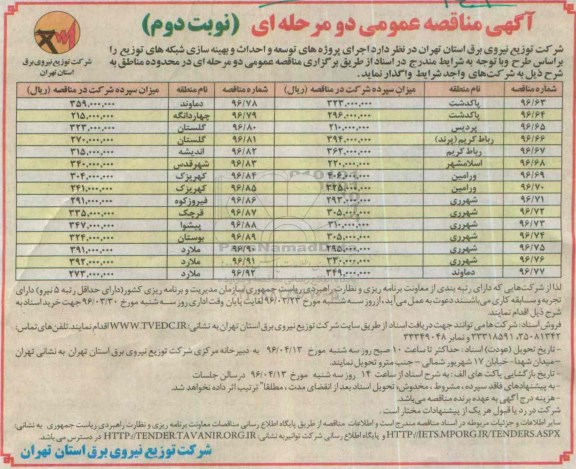 آگهی مناقصه عمومی دو مرحله ای (نوبت دوم)
شرکت توزیع نیروی برق
استان تهران
شرکت توزیع نیروی برق استان تهران در نظر دارد اجرای پروژه های توسعه و احداث و بهینه سازی شبکه های توزیع را
براساس طرح وبا توجه به شرایط مندرج در اسناد از طریق برگزاری مناقصه عمومی دو مرحله ای در محدوده مناطق به
شرح ذیل به شرکت‌های واجد شرایط واگذار نماید.
شماره مناقصه نام منطقه میزان سپرده شرکت در مناقصه (ریال) شماره مناقصه نام منطقه میزان سپرده شرکت در مناقصه (ریال)
۹۶/۶۳ پاکدشت ۳۲۳.۰۰۰.۰۰۰ ۹۶/۷۸ دماوند ۳۵۹.۰۰۰.۰۰۰
۹۶/۶۴ پاکدشت ۲۹۶.۰۰۰.۰۰۰ ۹۶/۷۹ چهاردانگه ۲۱۵.۰۰۰.۰۰۰
۹۶/۶۵ پردیس ۲۱۰.۰۰۰.۰۰۰ ۹۶/۸۰ گلستان ۳۲۳.۰۰۰.۰۰۰
۹۶/۶۶ رباط کریم (پرند) ۳۹۴.۰۰۰.۰۰۰ ۹۶/۸۱ گلستان ۲۷۰.۰۰۰.۰۰۰
۹۶/۶۷ رباط کریم ۳۶۲.۰۰۰.۰۰۰ ۹۶/۸۲ اندیشه ۳۱۵.۰۰۰.۰۰۰
۹۶/۶۸ اسلامشهر ۲۲۰.۰۰۰.۰۰۰ ۹۶/۸۳ شهرقدس ۳۴۰.۰۰۰.۰۰۰
۹۶/۶۹ ورامین ۴۰۶.۰۰۰.۰۰۰ ۹۶/۸۴ کهریزک ۳۰۴.۰۰۰.۰۰۰
۹۶/۷۰ ورامین ۳۲۵.۰۰۰.۰۰۰ ۹۶/۸۵ کهریزک ۲۴۱.۰۰۰.۰۰۰
۹۶/۷۱ شهرری ۲۹۳.۰۰۰.۰۰۰ ۹۶/۸۶ فیروزکوه ۲۹۱.۰۰۰.۰۰۰
۹۶/۷۲ شهرری ۳۰۵.۰۰۰.۰۰۰ ۹۶/۸۷ قرچک ۳۳۵.۰۰۰.۰۰۰
۹۶/۷۳ شهرری ۳۱۰.۰۰۰.۰۰۰ ۹۶/۸۸ پیشوا ۳۴۷.۰۰۰.۰۰۰
۹۶/۷۴ شهرری ۳۰۵.۰۰۰.۰۰۰ ۹۶/۸۹ بوستان ۳۲۴.۰۰۰.۰۰۰
۹۶/۷۵ شهرری ۲۹۵.۰۰۰.۰۰۰ ۹۶/۹۰ ملارد ۳۹۱.۰۰۰.۰۰۰
۹۶/۷۶ شهرری ۳۳۰.۰۰۰.۰۰۰ ۹۶/۹۱ ملارد ۳۹۲.۰۰۰.۰۰۰
۹۶/۷۷ دماوند ۳۴۹.۰۰۰.۰۰۰ ۹۶/۹۲ ملارد ۲۷۳.۰۰۰.۰۰۰
لذا از شرکت‌هایی که دارای رتبه بندی از معاونت برنامه ریزی و نظارت راهبردی ریاست جمهوری (سازمان مدیریت و برنامه ریزی کشور(دارای حداقل رتبه ۵ نیرو) دارای
تجربه و سابقه کاری می‌باشند دعوت به عمل می‌آید، از روز سه شنبه مورخ ۹۶/۰۳/۲۳ لغایت پایان وقت اداری روز سه شنبه مورخ ۹۶/۰۳/۳۰ جهت خرید اسناد به
شرح ذیل اقدام نمایند.
فروش اسناد: شرکت‌ها می توانند جهت دریافت اسناد از طریق سایت شرکت توزیع نیروی برق استان تهران به نشانی: WWW.TVEDC.IR اقدام نمایند. تلفن‌های تماس:
۳۵۰۸۱۳۴۲، ۳۳۳۱۸۵۹۱ و نمابر ۳۳۳۴۹۰۴۸
- تاریخ تحویل (عودت) اسناد: حداکثر تا ساعت ۱۰ صبح روز سه شنبه مورخ ۹۶/۰۴/۱۳ به دبیرخانه مرکزی شرکت توزیع نیروی برق استان تهران به نشانی تهران
-میدان شهدا- خیابان ۱۷ شهریور شمالی - جنب مترو تحویل نمایند.
- تاریخ بازگشایی پاکت های الف: به شرح اسناد از ساعت ۱۴ روز سه شنبه مورخ ۹۶/۰۴/۱۳ در سالن جلسات
- به پیشنهادهای فاقد سپرده، مشروط، مخدوش، تحویل اسناد بعد از انقضای مدت، مطلقا" ترتیب اثر داده نخواهد شد.
- هزینه درج آگهی به عهده برنده مناقصه می‌باشد.
شرکت در رد یا قبول هر یک از پیشنهادات مختار است.
سایر اطلاعات و جزئیات مربوطه در اسناد مناقصه مندرج است و اطلاعات مناقصه از طریق پایگاه اطلاع رسانی مناقصات معاونت برنامه ریزی و نظارت راهبردی ریاست جمهوری به نشانی:
HTTP://IETS.MPORG.IR/TENDERS.ASPX و پایگاه اطلاع رسانی شرکت توانیر به نشانی: HTTP://TENDER.TAVANIR.ORG.IR در دسترس می باشد.
شرکت توزیع نیروی برق استان تهران